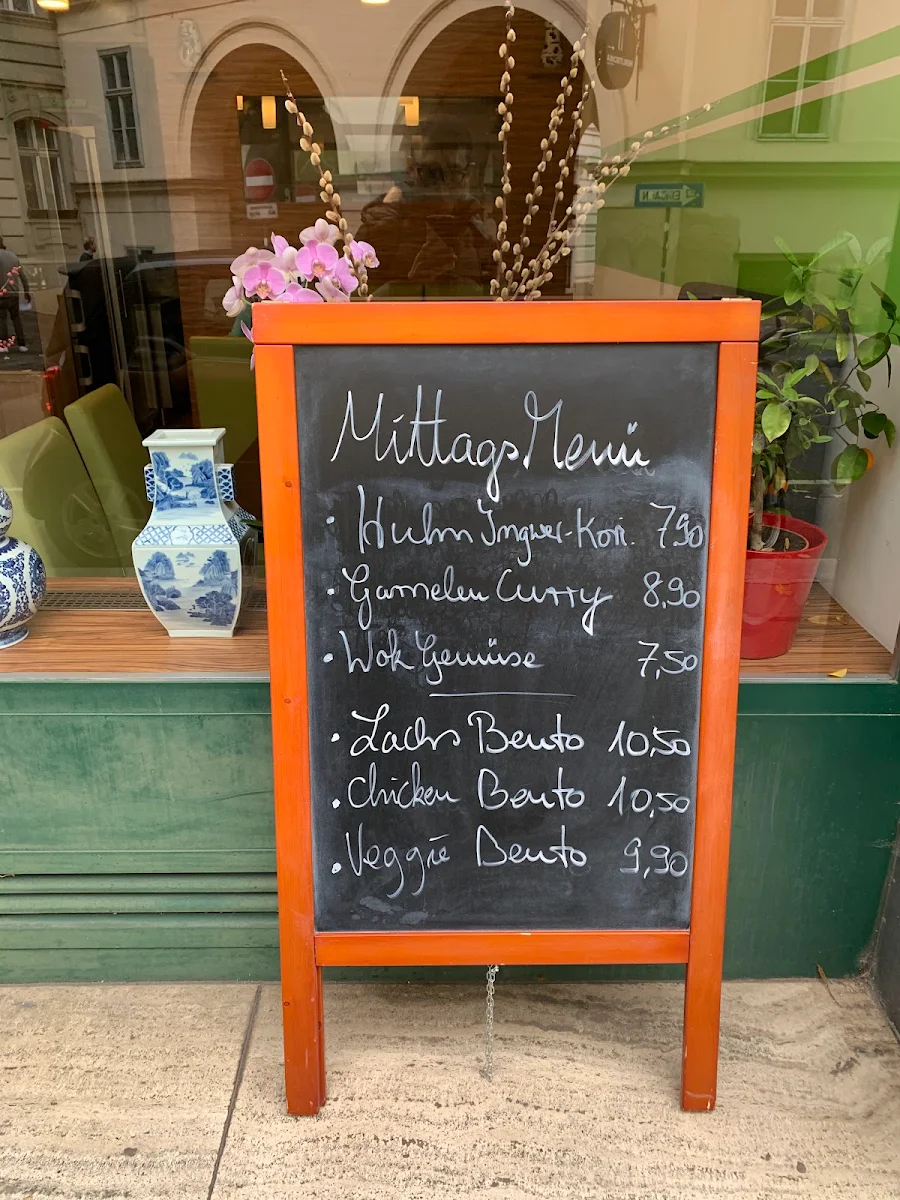 MittagsMenü
· Huhn Ingwer-Kori. 7,90
· Garnelen Curry 8,90
· Wok Gemüse 7,50
· Lachs Bento 10,50
· Chicken Bento 10,50
· Veggie Bento 9,90